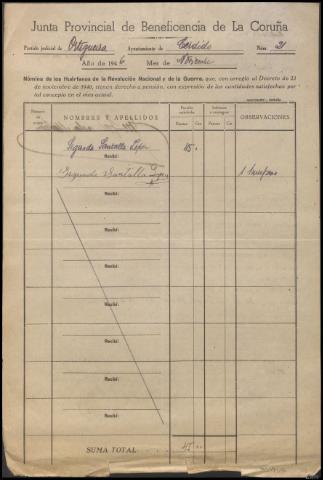 Junta Provincial de Beneficencia de La Coruña
Partido judicial de Ortigueira Ayuntamiento de Cerdido Núm. 21
Año de 1946 Mes de
Nómina de los Huérfanos de la Revolución Nacional y de la Guerra, que, con arreglo al Decreto de 23
de noviembre de 1940, tienen derecho a pensión, con expresión de las cantidades satisfechas por
tal concepto en el mes actual.
NOMBRES Y APELLIDOS
OBSERVACIONES
Pesetas Cts. Pesetas Cts.
Segundo Santalla López 45
Recibí:
Segundo Santalla López 1 huérfano
Recibí:
Recibí:
Recibí:
Recibí:
Recibí:
Recibí:
Recibí:
SUMA TOTAL 45